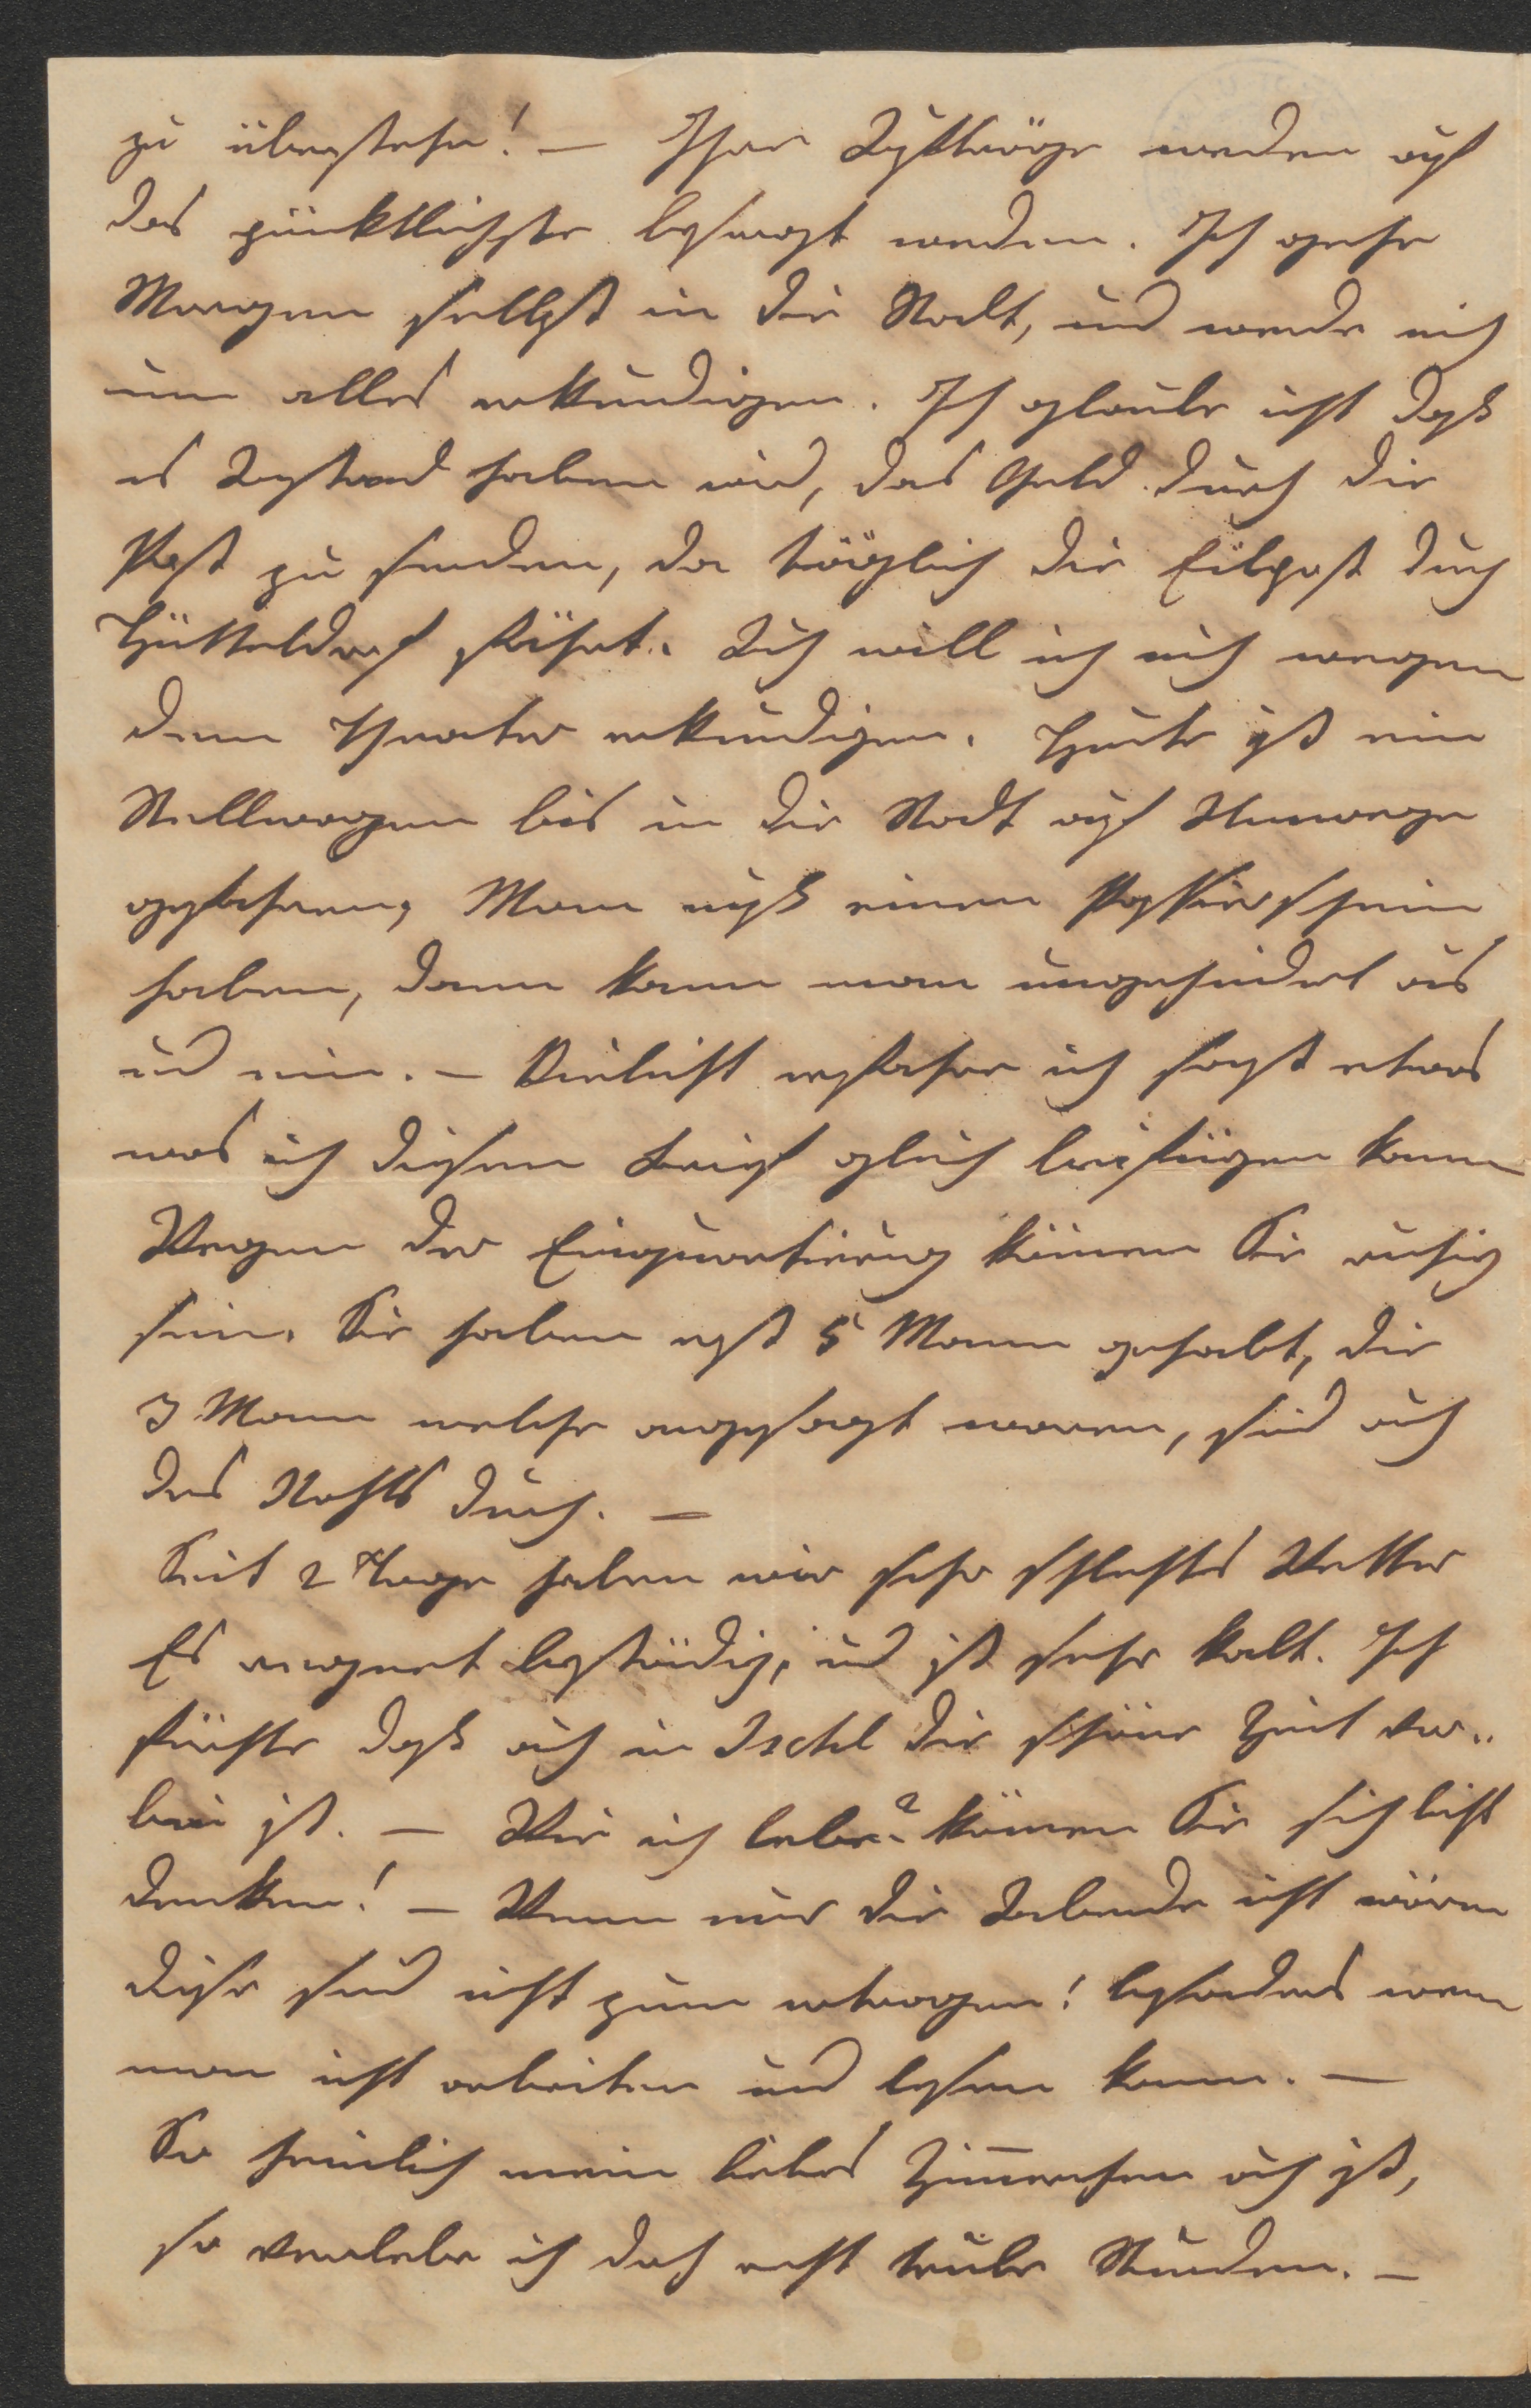 zu überstehn! — Ihre Aufträge werden auf
das pünktlichste besorgt werden. Ich gehe
Morgen selbst in die Stadt, und werde mich
um alles erkundigen. Ich glaube nicht daß
es Anstand haben wird, das Geld durch die
Post zu senden, da täglich die Eilpost durch
Hütteldorf fährt. Auch will ich mich wegen
dem Theater erkundigen. Heute ist ein
Stellwagen bis in die Stadt auf Umwege
gefahren, Man muß einen Passierschein
haben, dann kann man ungehindert aus
und ein. — Vieleicht erfahre ich sonst etwas
was ich diesem Brief gleich beifügen kann
Wegen der Einquartierung können Sie ruhig
sein. Sie haben erst 5 Mann gehabt, die
3 Mann welche angesagt waren, sind auch
des Nachts durch. —
Seit 2 Tage haben wir sehr schlechtes Wetter
Es regnet beständig, und ist sehr kalt. Ich
fürchte daß auch in Ischl die schöne Zeit vor„
bei ist. — Wie ich lebe? können Sie sich leicht
denken! — Wenn nur die Abende nicht wären
diese sind nicht zum ertragen! besonders wenn
man nicht arbeiten und lesen kann. —
So heimlich mein liebes Zimmerchen auch ist,
so verlebe ich doch recht trübe Stunden. —